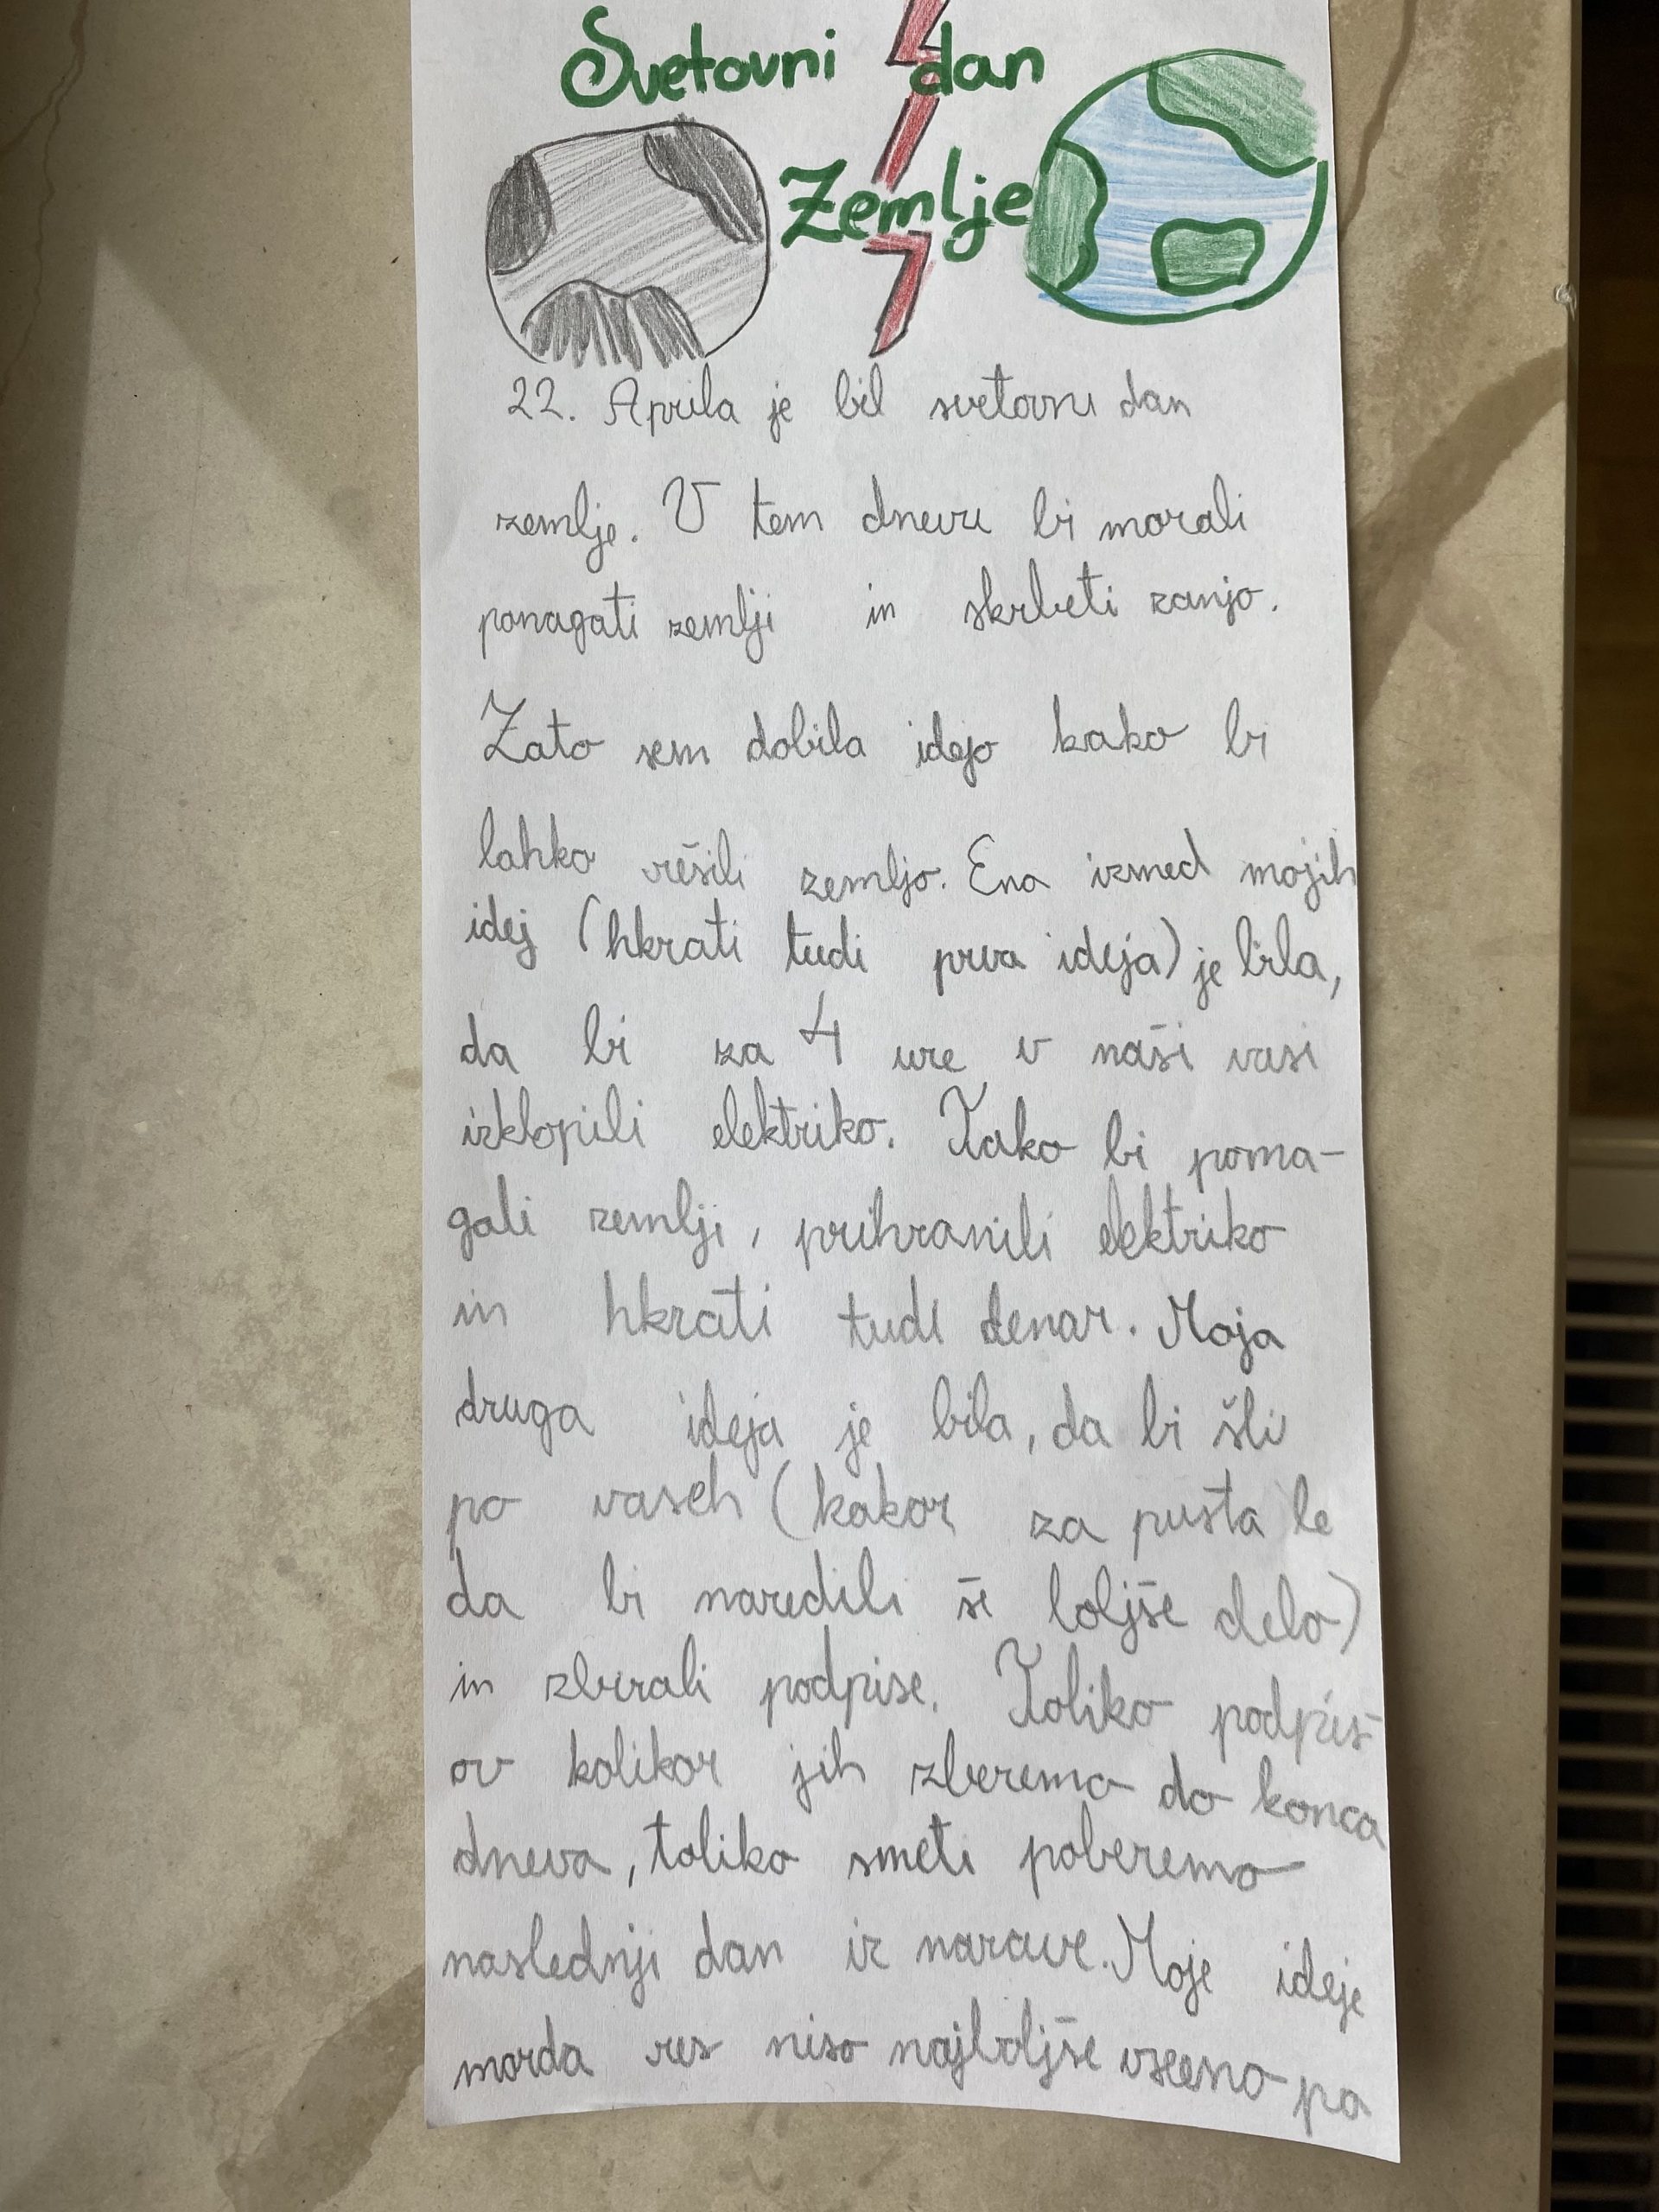 Svetovni dan
Zemlje
22. Aprila je bil svetovni dan
zemlje. V tem dnevu bi morali
ponagati zemlji in skrbeti zanjo.
Zato sem dobila idejo kako bi
lahko rešili zemljo. Ena izmed mojih
idej (hkrati tudi prva ideja) je bila,
da bi za 4 ure v naši vasi
izklopili elektriko. Tako bi poma-
gali zemlji, prihranili elektriko
in hkrati tudi denar. Moja
druga ideja je bila, da bi šli
po vaseh (kakor za pusta le
da bi naredili še boljše delo)
in zbirali podpise. Toliko podpis-
ov kolikor jih zberemo do konca
dneva, toliko smeti poberemo
naslednji dan iz narave. Moje ideje
morda res niso najboljše vseeno pa